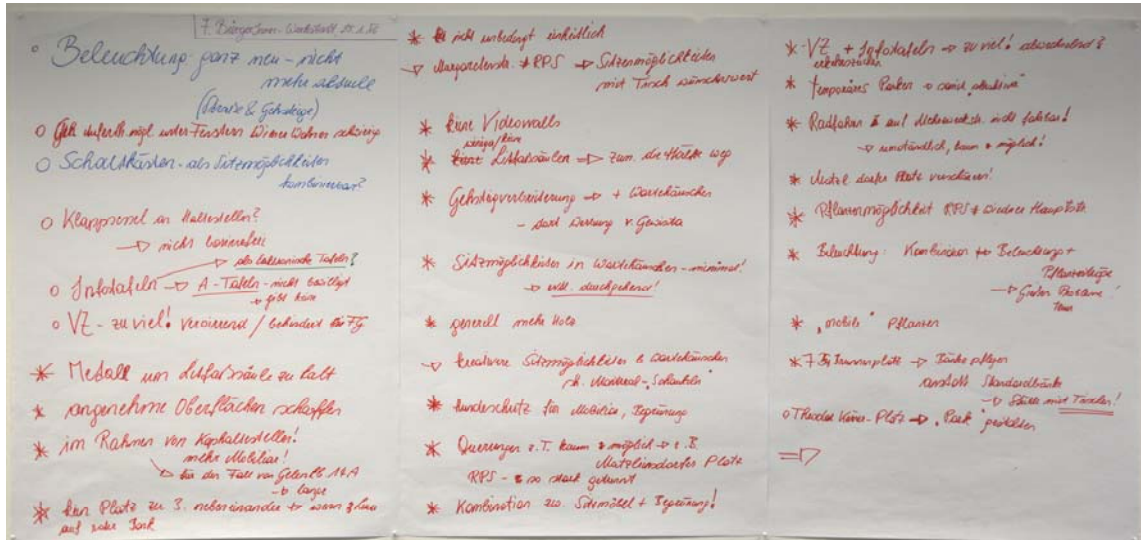 7. BürgerInnen-Werkstatt
Beleuchtung: ganz neu - nicht
mehr aktuelle
(Strasse & Gehsteige)
unter Fenstern
Schaltkästen - als Sitzmöglichkeiten
kombinierbar?
Klappsessel an Haltestellen?
nicht barrierefrei
Tafeln?
Infotafeln → A-Tafeln - nicht bewilligt
→ gibt kein
VZ - zu viel! verwirrend / behindert für FG
* Metall um Litfaßsäule zu kalt
* angenehme Oberflächen schaffen
* im Rahmen von Kaphaltestellen!
mehr Mobiliar!
für den Fall von Gelenkb. 14A
→ lange
* kein Platz zu 3. nebeneinander
auf Bank
* nicht unbedingt einheitlich
→ Margaretenstr. + RPS → Sitzmöglichkeiten
mit Tisch wünschenswert
* keine Videowalls
wenige/keine
* keine Litfaßsäulen → zum. die Hälfte weg
* Gehsteigverbreiterung → + Wartehäuschen
- dort Werbung v. Gewista
* Sitzmöglichkeiten in Wartehäuschen - minimal!
→ evtl. durchgehend!
* generell mehr Holz
→ kreativere Sitzmöglichkeiten & Wartehäuschen
Montreal - "Schaukeln"
* Hundeschutz für Mobiliar, Begrünung
* Querungen z.T. kaum möglich → z.B.
Matzleinsdorfer Platz
RPS - so stark getrennt
* Kombination zw. Sitzmöbel + Begrünung!
* VZ + Infotafeln → zu viel!
* temporäres Parken
* Radfahren auf nicht fahrbar!
→ umständlich, kaum möglich!
Platz verschönern!
* Pflanzenmöglichkeit RPS + Wiedner Hauptstr.
* Beleuchtung: Kombination Beleuchtung +
Pflanzentröge
→ Grüner Daumen
Team
* "mobile" Pflanzen
→ Bänke pflegen
anstatt Standardbänke
mit Tischen!
Theodor Körner-Platz → "Park" gestalten
⇒